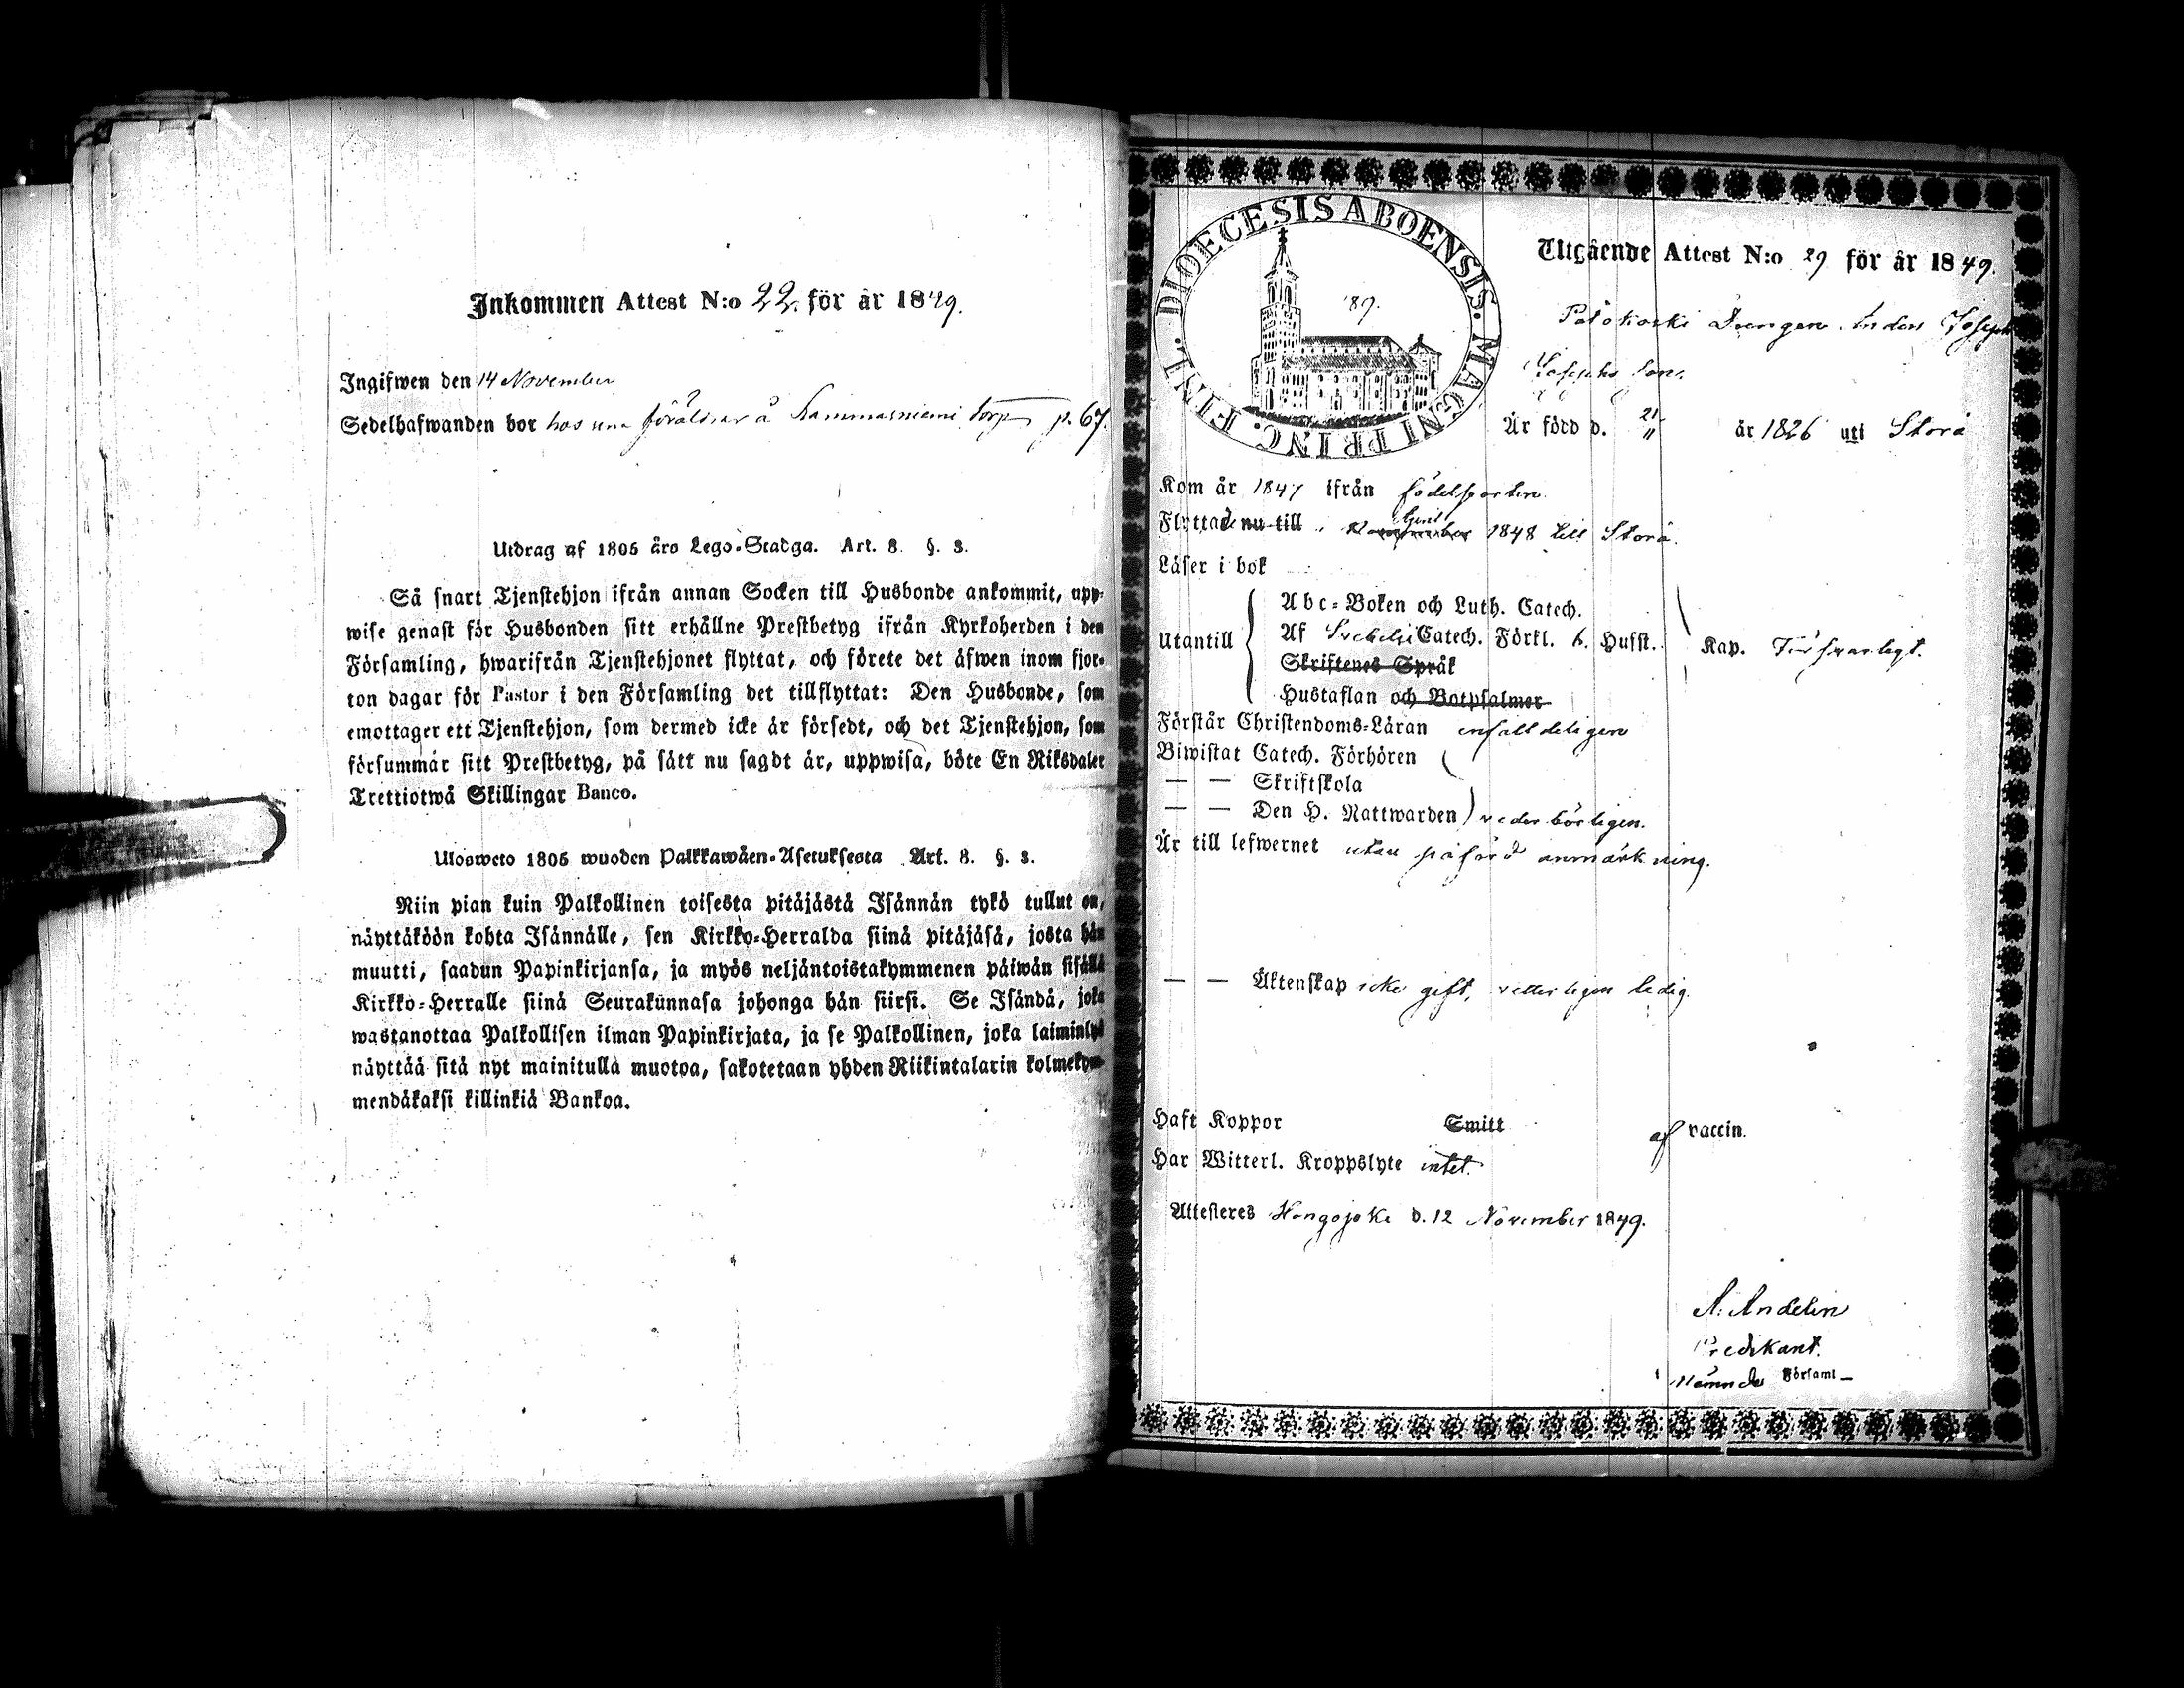 Inkommen Attest N:o 22. för år 1849.
Ingifwen den 14 November
Sedelhafwanden bor hos sina föräldrar å Kammarniemi torp p. 67.
Utdrag af 1805 års Lego-Stadga. Art. 8. §. 3.
Så snart Tjenstehjon ifrån annan Socken till Husbonde ankommit, upp-
wise genast för Husbonden sitt erhållne Prestbetyg ifrån Kyrkoherden i den
Församling, hwarifrån Tjenstehjonet flyttat, och förete det äfwen inom fjor-
ton dagar för Pastor i den Församling det tillflyttat: Den Husbonde, som
emottager ett Tjenstehjon, som dermed icke är försedt, och det Tjenstehjon, som
försummar sitt Prestbetyg, på sätt nu sagdt är, uppwisa, böte En Riksdaler
Trettiotwå Skillingar Banco.
Ulosweto 1805 wuoden Palkkawäen-Asetuksesta Art. 8. §. 3.
Niin pian kuin Palkollinen toisesta pitäjästä Isännän tykö tullut on,
näyttäköön kohta Isännälle, sen Kirkko-Herralda siinä pitäjäsä, josta hän
muutti, saadun Papinkirjansa, ja myös neljäntoistakymmenen päiwän sisällä
Kirkko-Herralle siinä Seurakunnasa johonga hän siirsi. Se Isändä, joka
wastanottaa Palkollisen ilman Papinkirjata, ja se Palkollinen, joka laiminlyö
näyttää sitä nyt mainitulla muotoa, sakotetaan yhden Riikintalarin kolmekym-
mendäkaksi killinkiä Bankoa.
DIOECESIS ABOENSIS. MAGNI PRINC. FINL.
89.
Utgående Attest N:o 29 för år 1849.
Drengen Josephs Son
Är född d. 21/11 år 1826 uti Storå
Kom år 1847 ifrån födelseorten
Flyttade nu till 1848 till Storå.
Läser i bok
Abc-Boken och Luth. Catech.
Utantill Af Svebelii Catech. Förkl. 6. Hufst. Kap. Försvarligt.
Skriftenes Språk
Hustaflan och Botpsalmer
Förstår Christendoms-Läran enfaldeligen
Biwistat Catech. Förhören
— — Skriftskola
— — Den H. Nattwarden vederbörligen.
Är till lefwernet utan påförd anmärkning.
— — Äktenskap icke gift, vitterligen ledig.
Haft Koppor Smitt af vaccin.
Har Witterl. Kroppslyte intet.
Attesteres Hongojoki d. 12 November 1849.
A: Andelin
Predikant.
i Nämnde Församl